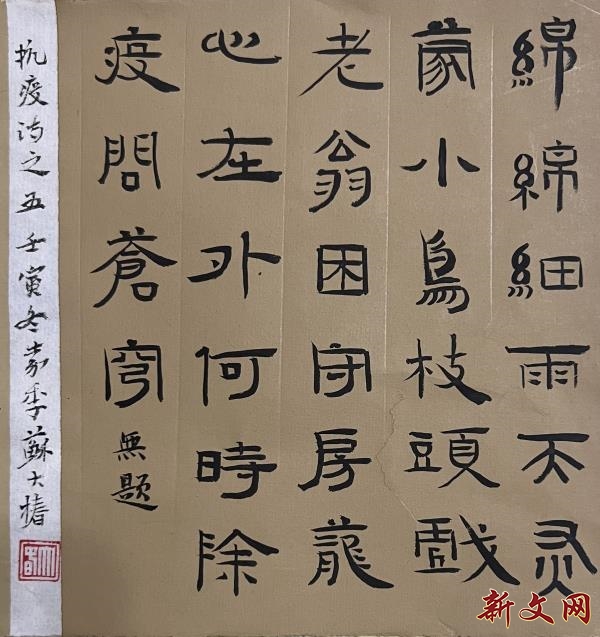 綿綿細雨天灰
蒙小鳥枝頭戲
老翁困守房龍
心在外何時除
疫問蒼穹 無題
抗疫诗之五壬寅冬歲季蘇大椿
新文网